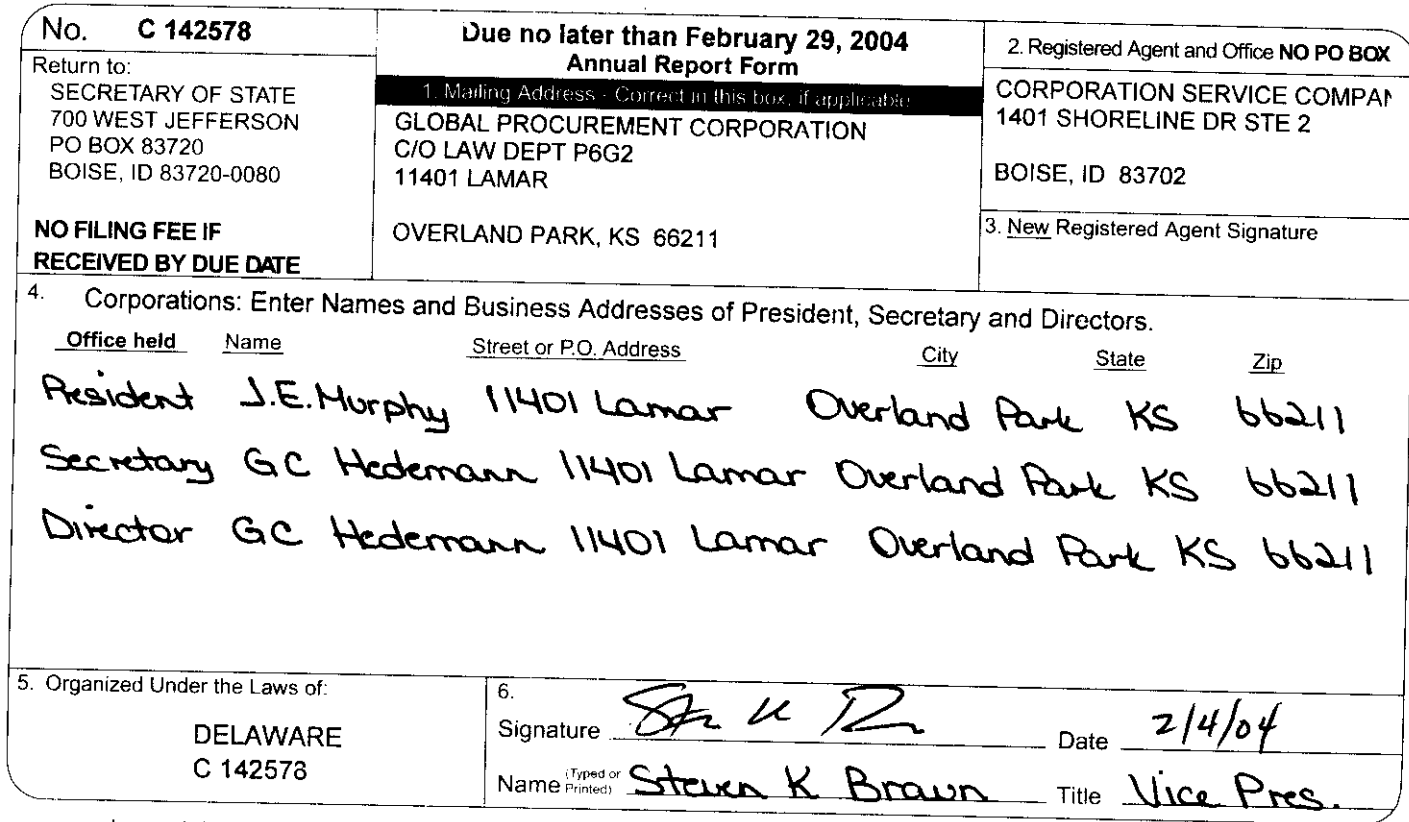 No. C 142578
Return to:
SECRETARY OF STATE
700 WEST JEFFERSON
PO BOX 83720
BOISE, ID 83720-0080
NO FILING FEE IF
RECEIVED BY DUE DATE
Due no later than February 29, 2004
Annual Report Form
1. Mailing Address - Correct in this box, if applicable
GLOBAL PROCUREMENT CORPORATION
C/O LAW DEPT P6G2
11401 LAMAR
OVERLAND PARK, KS 66211
2. Registered Agent and Office NO PO BOX
CORPORATION SERVICE COMPAN
1401 SHORELINE DR STE 2
BOISE, ID 83702
3. New Registered Agent Signature
4. Corporations: Enter Names and Business Addresses of President, Secretary and Directors.
Office held Name Street or P.O. Address City State Zip
President J.E. Murphy 11401 Lamar Overland Park KS 66211
Secretary GC Hedemann 11401 Lamar Overland Park KS 66211
Director GC Hedemann 11401 Lamar Overland Park KS 66211
5. Organized Under the Laws of:
DELAWARE
C 142578
6.
Signature Date 2/4/04
Name (Typed or Printed) Steven K Braun Title Vice Pres.